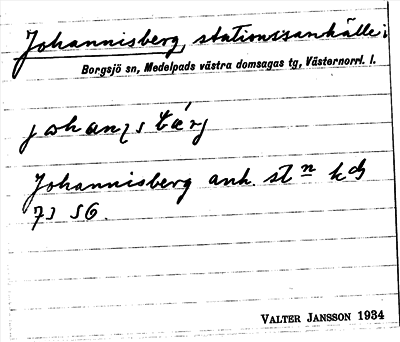 Johannisberg, stationssamhälle i
Borgsjö sn, Medelpads västra domsagas tg, Västernorrl. l.
Johannisberg anh. stn kds
73 56.
VALTER JANSSON 1934